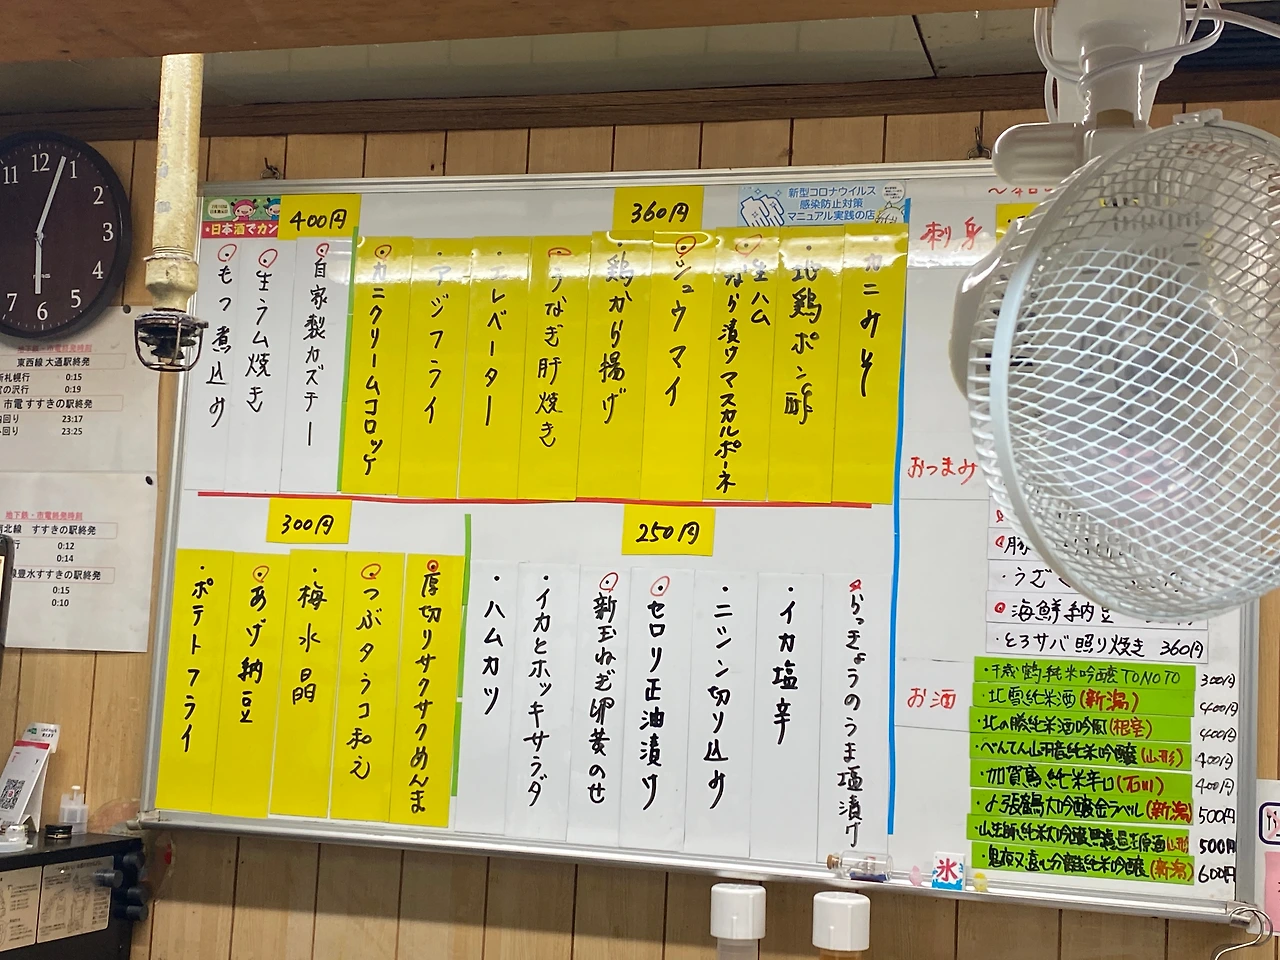 11 12 1
2
3
4
5
6
7
地下鉄・市電終発時刻
東西線 大通駅終発
新札幌行 0:15
宮の沢行 0:19
市電 すすきの駅終発
内回り 23:17
外回り 23:25
地下鉄・市電終発時刻
南北線 すすきの駅終発
0:12
0:14
豊水すすきの駅終発
0:15
0:10
日本酒でカン
新型コロナウイルス
感染防止対策
マニュアル実践の店
400円
360円
・カニみそ
・地鶏ポン酢
・生ハム
なら漬ケマスカルポーネ
・シュウマイ
・鶏から揚げ
・うなぎ肝焼き
・エレベーター
・アジフライ
・カニクリームコロッケ
・自家製カズチー
・生ラム焼き
・もつ煮込み
300円
250円
・らっきょうのうま塩漬け
・イカ塩辛
・ニシン切り込み
・セロリ正油漬け
・新玉ねぎ卵黄のせ
・イカとホッキサラダ
・ハムカツ
・厚切りサクサクめんま
・つぶタうコ和え
・梅水晶
・あげ納豆
・ポテトフライ
刺身
おつまみ
・うざ
・海鮮納豆
・とろサバ照り焼き 360円
お酒
・千歳鶴純米吟醸TONOTO 300円
・北雪純米酒(新潟) 400円
・北の勝純米酒吟風(根室) 400円
・べんてん山田錦純米吟醸(山形) 400円
・加賀鳶純米辛口(石川) 400円
・〆張鶴大吟醸金ラベル(新潟) 500円
500円
・鬼夜叉遠心分離純米吟醸(新潟) 600円
氷